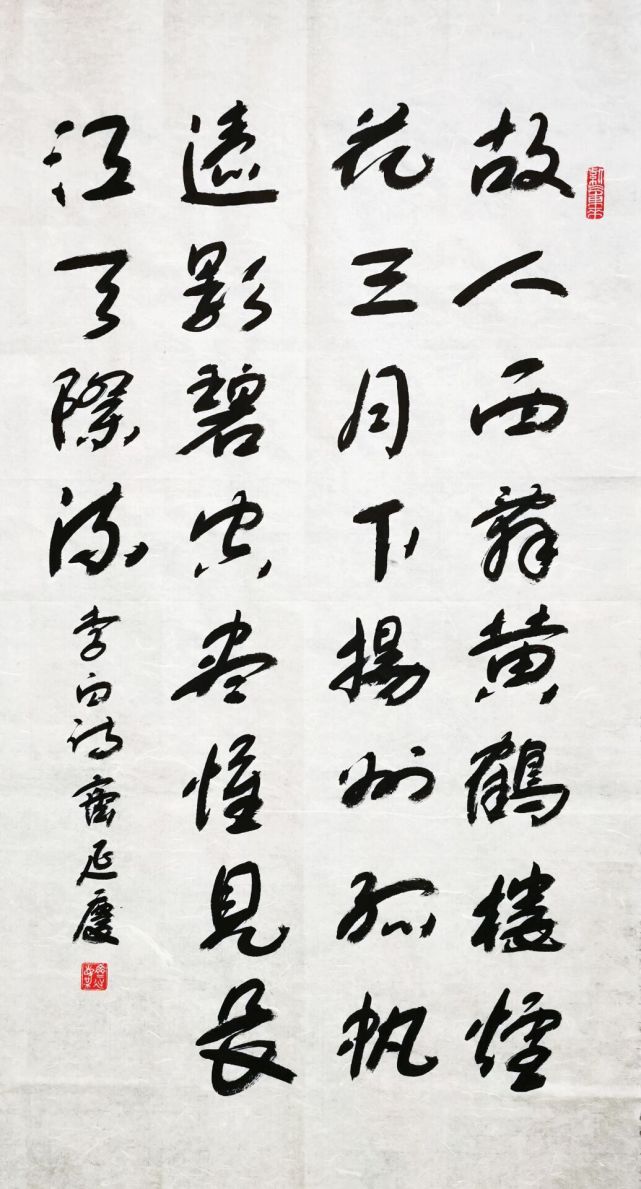 故人西辭黄鶴樓煙
花三月下揚州孤帆
遠影碧空盡惟見長
江天際流 李白詩 齊延慶